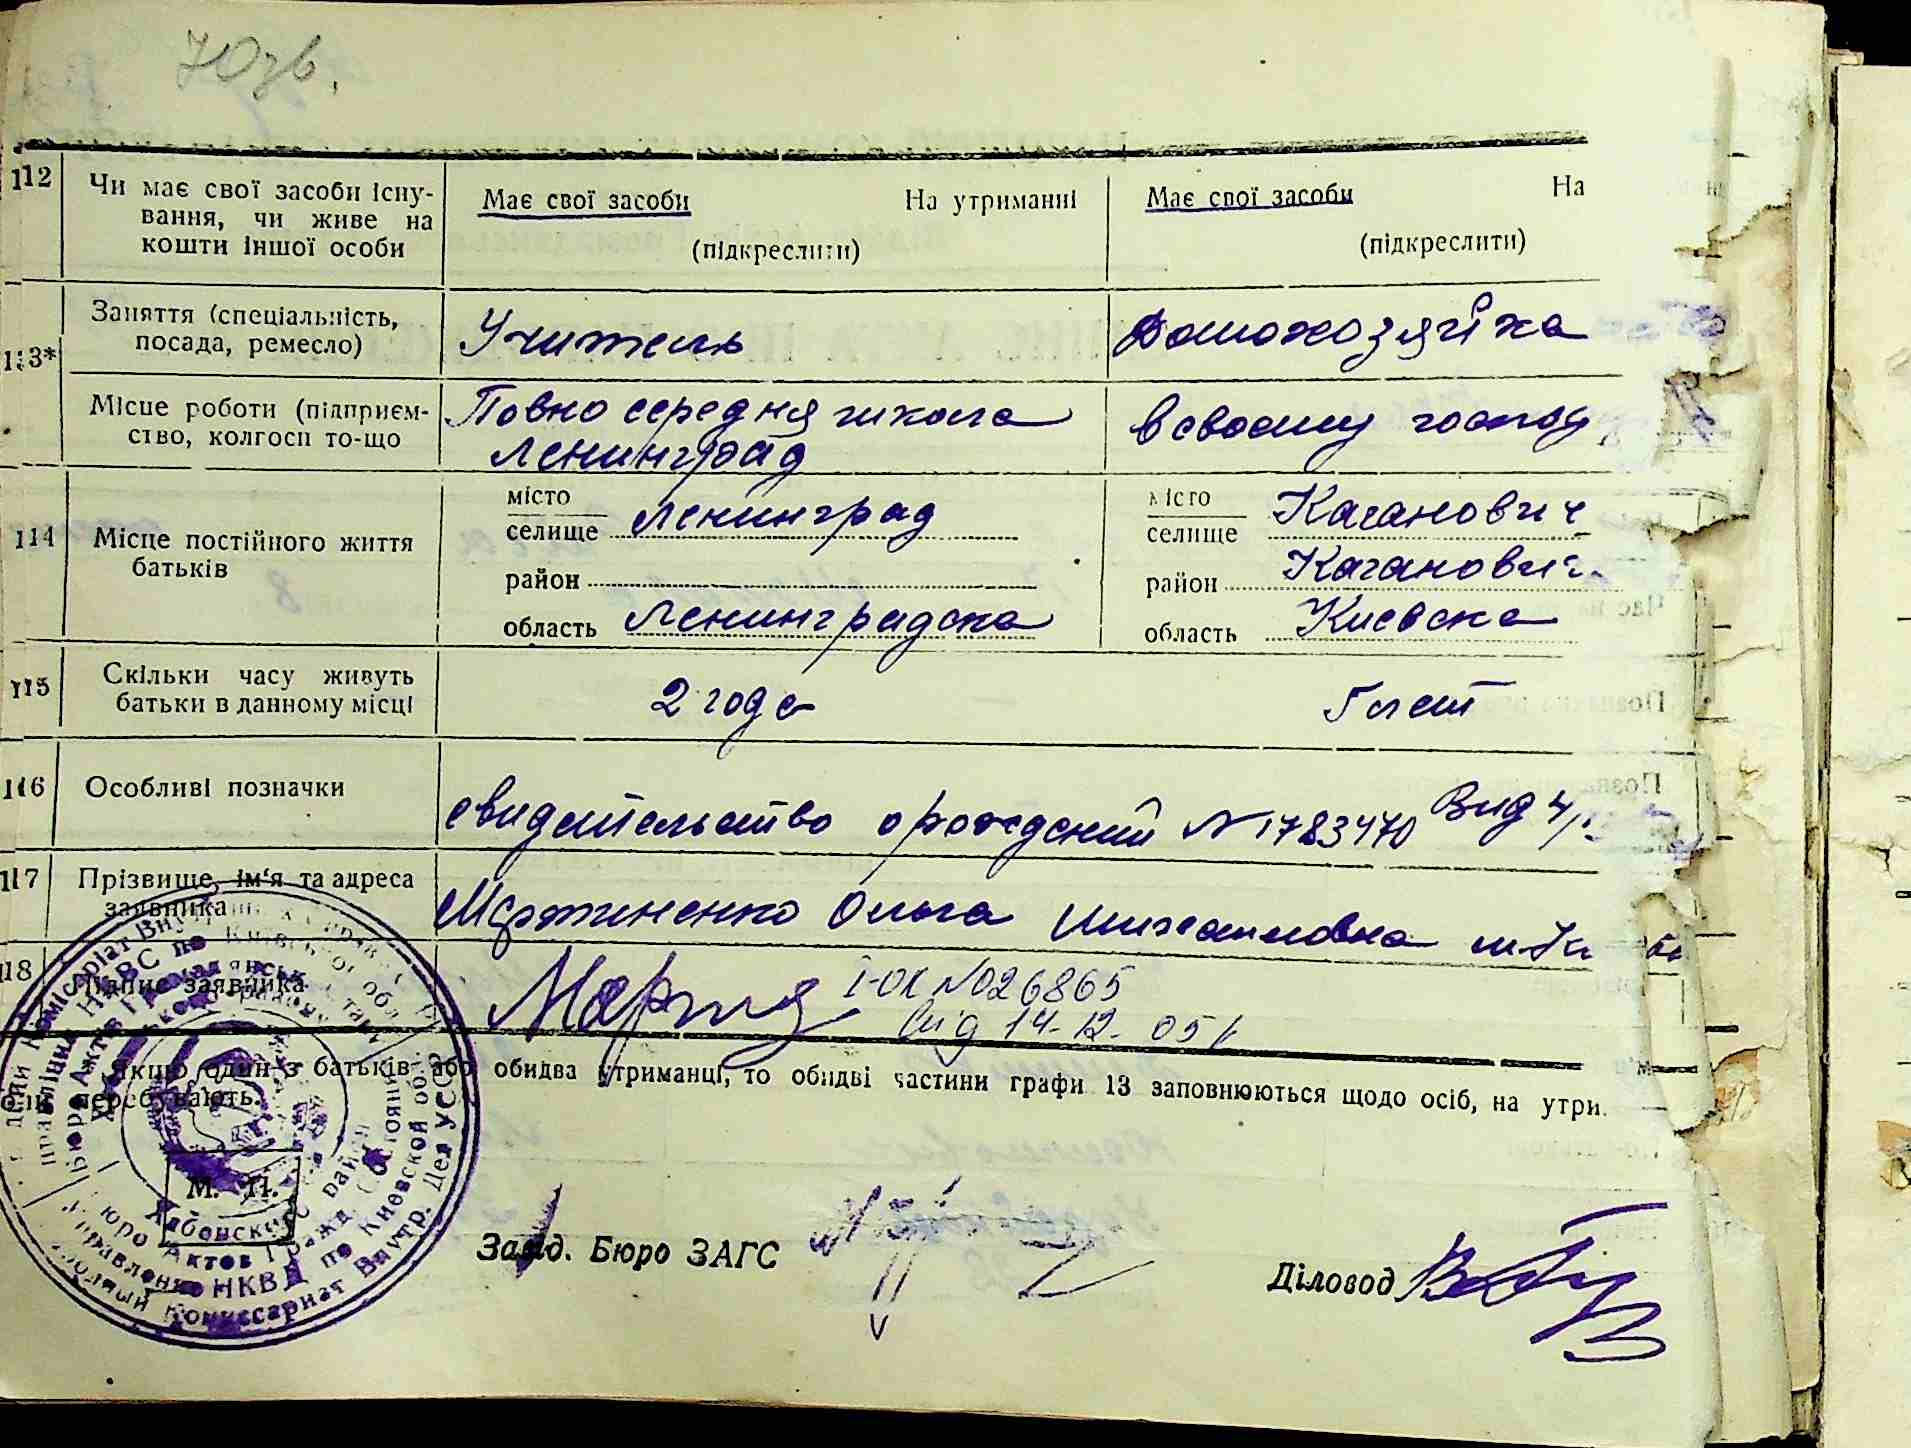 112 Чи має свої засоби існу-
вання, чи живе на
кошти іншої особи
Має свої засоби На утриманні
(підкреслити)
Має свої засоби На
(підкреслити)
113* Заняття (спеціальність,
посада, ремесло)
Учитель
Домохозяйка
Місце роботи (підприєм-
ство, колгосп то-що
Повно середня школа
Ленинград
в своему господ
114 Місце постійного життя
батьків
місто
селище Ленинград
район
область Ленинградска
місто
селище Каганович
район Каганович.
область Киевска
115 Скільки часу живуть
батьки в данному місці
2 года
лет
116 Особливі позначки
свидетельство о рождений N 1783470 Вид
117 Прізвище, ім'я та адреса
заявника
Мартиненко Ольга Михайловна м.
118 Підпис заявника
I-ОК №026865
від 14-12. 05
Якщо один з батьків або обидва утриманці, то обидві частини графи 13 заповнюються щодо осіб, на утри
перебувають.
М. П.
Завід. Бюро ЗАГС
Діловод